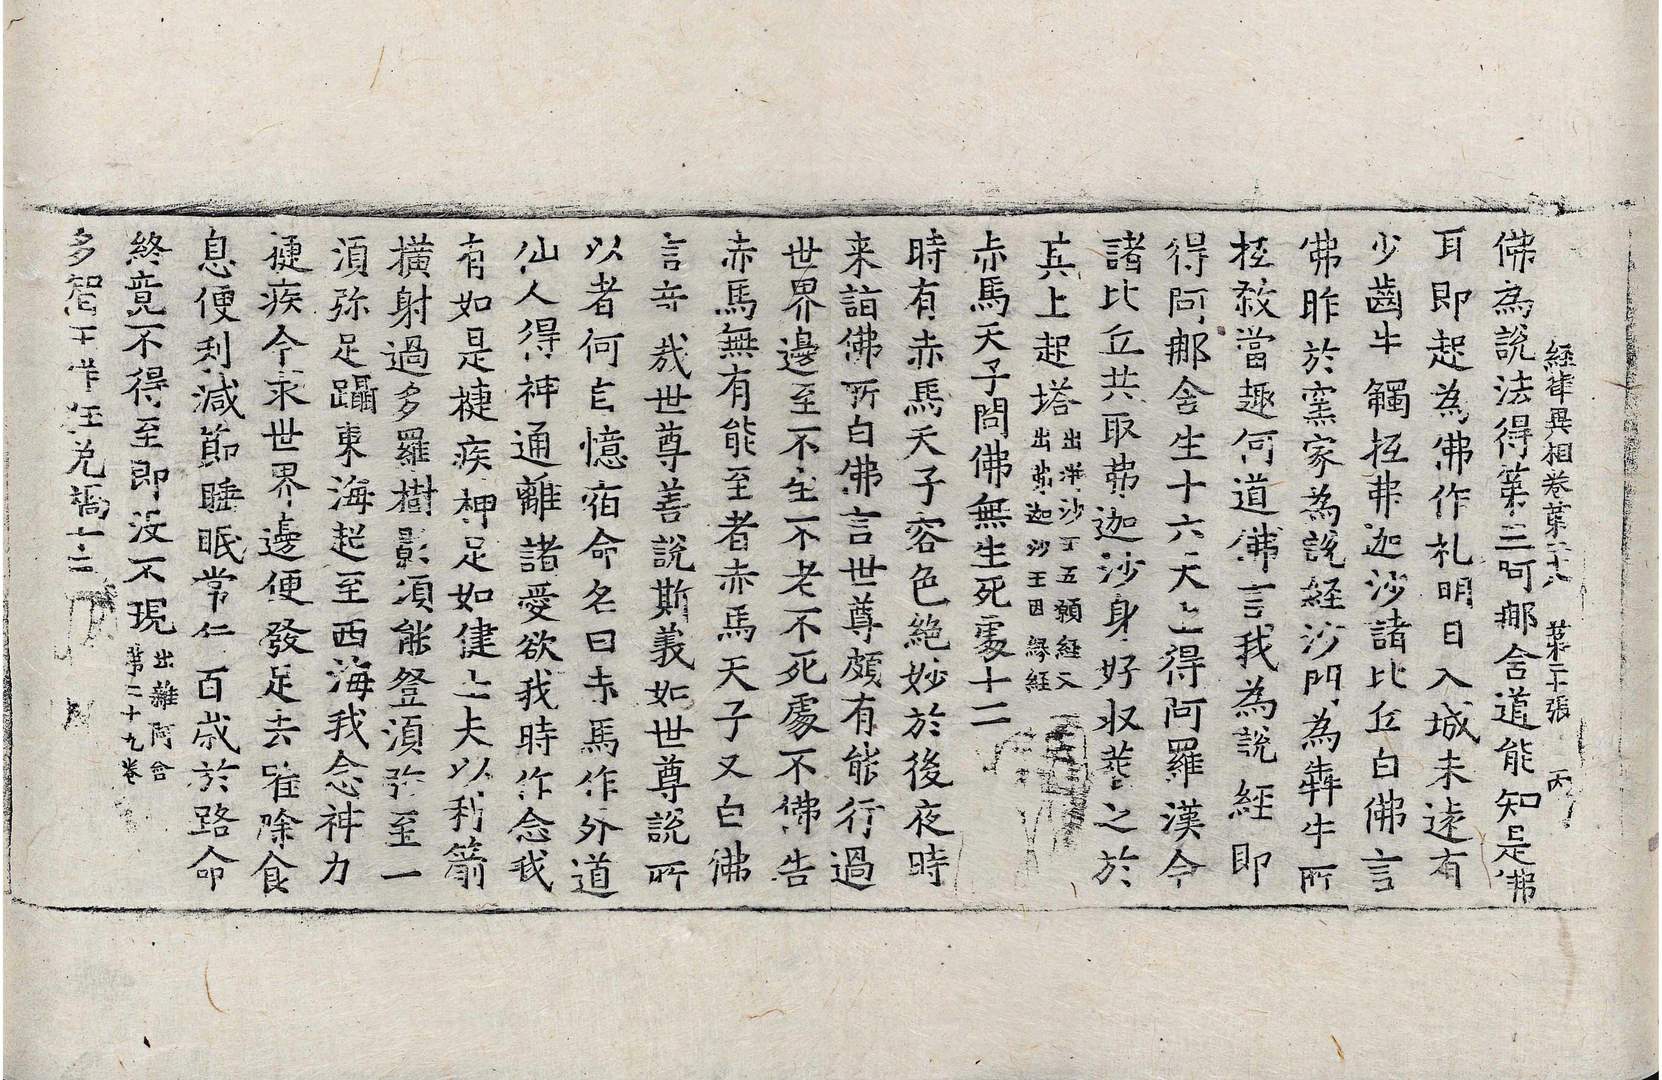 經律異相卷第二十八 第二十張 丙
佛為說法得第三阿那舍道能知是佛
耳即起為佛作礼明日入城未遠有
少齒牛觸抂弗迦沙諸比丘白佛言
佛昨於窯家為說経沙門為犇牛所
抂煞當趣何道佛言我為說経即
得阿那舍生十六天上得阿羅漢今
諸比丘共取弗迦沙身好収葬之於
其上起塔 出蓱沙王五願経又
出弗迦沙王因縁経
赤馬天子問佛無生死處十二
時有赤馬天子容色絶妙於後夜時
来詣佛所白佛言世尊頗有能行過
世界邊至不生不老不死處不佛告
赤馬無有能至者赤馬天子又白佛
言奇哉世尊善說斯義如世尊說所
以者何自憶宿命名曰赤馬作外道
仙人得神通離諸愛欲我時作念我
有如是揵疾神足如健士夫以利箭
橫射過多羅樹影須能登須弥至一
須弥足躡東海起至西海我念神力
揵疾今求世界邊便發足去唯除食
息便利減節睡眠常行百歲於路命
終竟不得至即没不現 出雜阿含
第二十九卷
多智王佯狂免禍十三